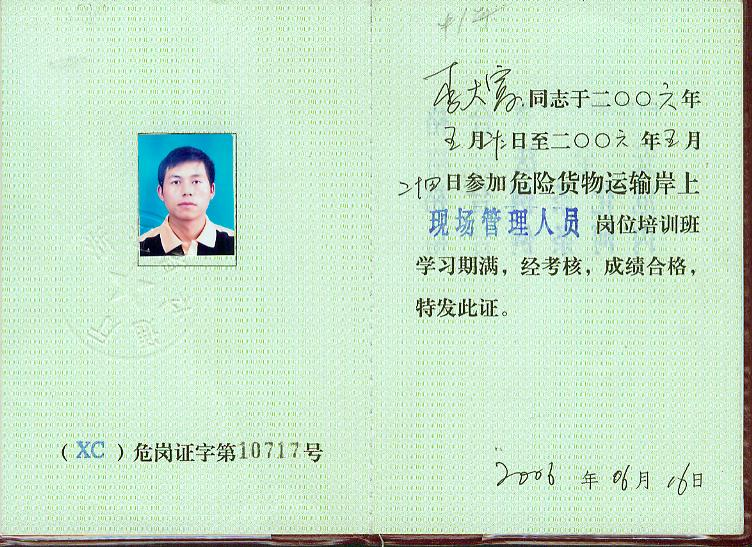 李大富 同志于二〇〇六年
五月 日至二〇〇六年五月
二十四日参加危险货物运输岸上
现场管理人员 岗位培训班
学习期满，经考核，成绩合格，
特发此证。
（XC）危岗证字第10717号
2006 年 06月 16日